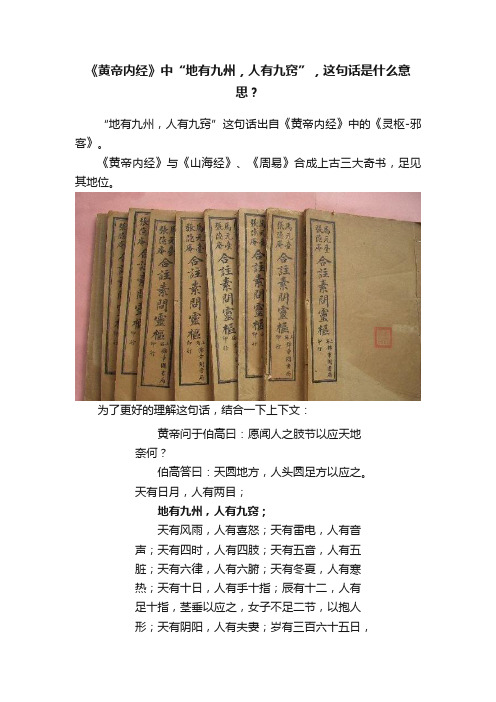 《黄帝内经》中“地有九州，人有九窍”，这句话是什么意
思？
“地有九州，人有九窍”这句话出自《黄帝内经》中的《灵枢-邪
客》。
《黄帝内经》与《山海经》、《周易》合成上古三大奇书，足见
其地位。
馬元臺
張隐庵
合註素問靈樞
印行
為了更好的理解这句话，结合一下上下文：
黄帝问于伯高曰：愿闻人之肢节以应天地
奈何？
伯高答曰：天圆地方，人头圆足方以应之。
天有日月，人有两目；
地有九州，人有九窍；
天有风雨，人有喜怒；天有雷电，人有音
声；天有四时，人有四肢；天有五音，人有五
脏；天有六律，人有六腑；天有冬夏，人有寒
热；天有十日，人有手十指；辰有十二，人有
足十指，茎垂以应之，女子不足二节，以抱人
形；天有阴阳，人有夫妻；岁有三百六十五日，